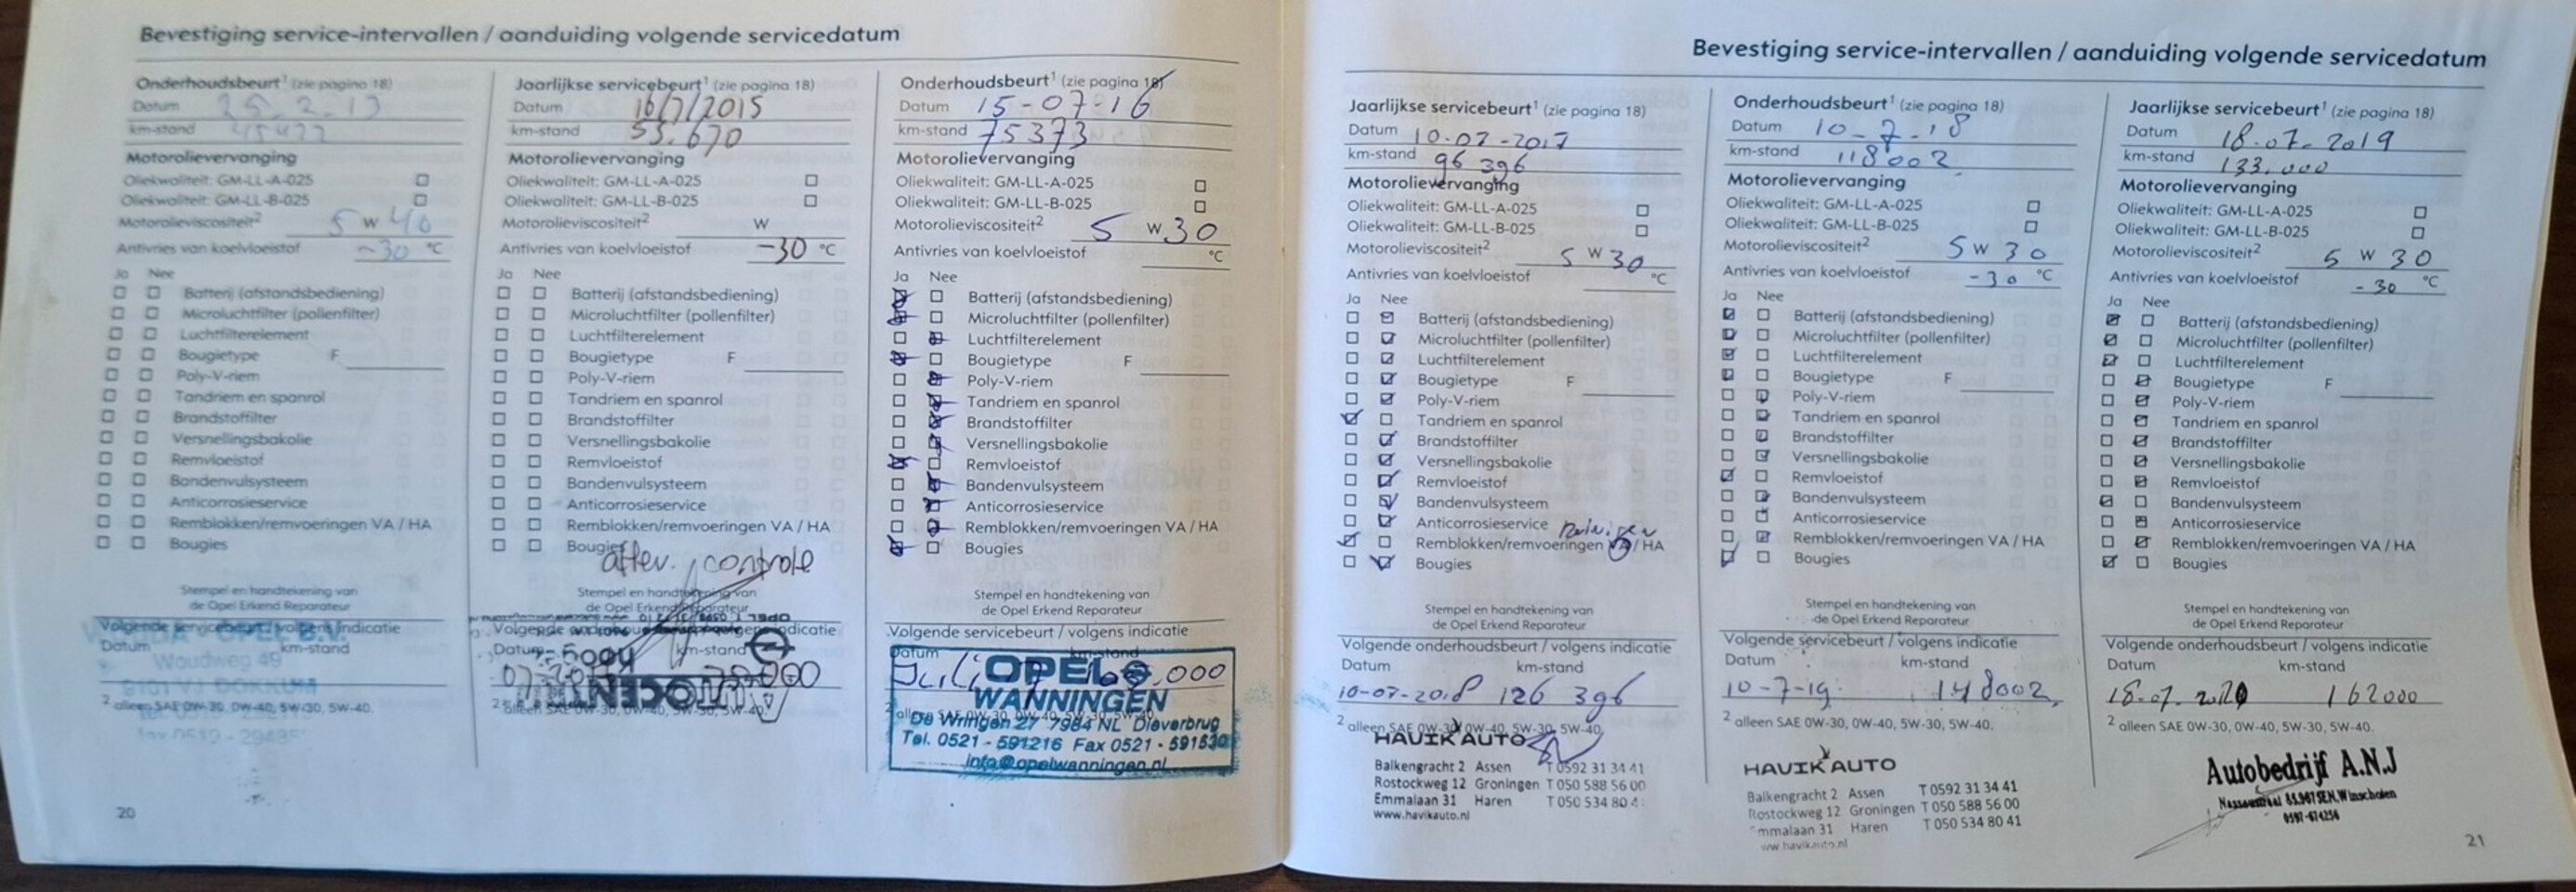 Bevestiging service-intervallen / aanduiding volgende servicedatum
Onderhoudsbeurt¹ (zie pagina 18)
Datum 25.2.13
km-stand
Motorolievervanging
Oliekwaliteit: GM-LL-A-025
Oliekwaliteit: GM-LL-B-025
Motorolieviscositeit² 5 W 40
Antivries van koelvloeistof -30 °C
Ja Nee
Batterij (afstandsbediening)
Microluchtfilter (pollenfilter)
Luchtfilterelement
Bougietype F
Poly-V-riem
Tandriem en spanrol
Brandstoffilter
Versnellingsbakolie
Remvloeistof
Bandenvulsysteem
Anticorrosieservice
Remblokken/remvoeringen VA / HA
Bougies
Stempel en handtekening van
de Opel Erkend Reparateur
Volgende servicebeurt / volgens indicatie
Datum km-stand
Woudweg 49
9101 VJ DOKKUM
² alleen SAE 0W-30, 0W-40, 5W-30, 5W-40.
20
Jaarlijkse servicebeurt¹ (zie pagina 18)
Datum 16/7/2015
km-stand 53.670
Motorolievervanging
Oliekwaliteit: GM-LL-A-025
Oliekwaliteit: GM-LL-B-025
Motorolieviscositeit² W
Antivries van koelvloeistof -30 °C
Ja Nee
Batterij (afstandsbediening)
Microluchtfilter (pollenfilter)
Luchtfilterelement
Bougietype F
Poly-V-riem
Tandriem en spanrol
Brandstoffilter
Versnellingsbakolie
Remvloeistof
Bandenvulsysteem
Anticorrosieservice
Remblokken/remvoeringen VA / HA
Bougies
aflev. controle
Stempel en handtekening van
de Opel Erkend Reparateur
Volgende volgens indicatie
Datum km-stand
² alleen SAE 0W-30, 0W-40, 5W-30, 5W-40.
Onderhoudsbeurt¹ (zie pagina 18)
Datum 15-07-16
km-stand 75373
Motorolievervanging
Oliekwaliteit: GM-LL-A-025
Oliekwaliteit: GM-LL-B-025
Motorolieviscositeit² 5 W 30
Antivries van koelvloeistof °C
Ja Nee
Batterij (afstandsbediening)
Microluchtfilter (pollenfilter)
Luchtfilterelement
Bougietype F
Poly-V-riem
Tandriem en spanrol
Brandstoffilter
Versnellingsbakolie
Remvloeistof
Bandenvulsysteem
Anticorrosieservice
Remblokken/remvoeringen VA / HA
Bougies
Stempel en handtekening van
de Opel Erkend Reparateur
Volgende servicebeurt / volgens indicatie
Datum km-stand
Juli
OPEL
WANNINGEN
De Wringen 27 7984 NL Dieverbrug
Tel. 0521 - 591216 Fax 0521 - 591530
info@opelwanningen.nl
Bevestiging service-intervallen / aanduiding volgende servicedatum
Jaarlijkse servicebeurt¹ (zie pagina 18)
Datum 10-07-2017
km-stand 96 396
Motorolievervanging
Oliekwaliteit: GM-LL-A-025
Oliekwaliteit: GM-LL-B-025
Motorolieviscositeit² 5 W 30
Antivries van koelvloeistof °C
Ja Nee
Batterij (afstandsbediening)
Microluchtfilter (pollenfilter)
Luchtfilterelement
Bougietype F
Poly-V-riem
Tandriem en spanrol
Brandstoffilter
Versnellingsbakolie
Remvloeistof
Bandenvulsysteem
Anticorrosieservice
Remblokken/remvoeringen VA / HA
Bougies
Stempel en handtekening van
de Opel Erkend Reparateur
Volgende onderhoudsbeurt / volgens indicatie
Datum km-stand
10-07-2018 126 396
² alleen SAE 0W-30, 0W-40, 5W-30, 5W-40.
HAVIK AUTO
Balkengracht 2 Assen T 0592 31 34 41
Rostockweg 12 Groningen T 050 588 56 00
Emmalaan 31 Haren T 050 534 80 4
www.havikauto.nl
Onderhoudsbeurt¹ (zie pagina 18)
Datum 10-7-18
km-stand 118002
Motorolievervanging
Oliekwaliteit: GM-LL-A-025
Oliekwaliteit: GM-LL-B-025
Motorolieviscositeit² 5 W 30
Antivries van koelvloeistof -30 °C
Ja Nee
Batterij (afstandsbediening)
Microluchtfilter (pollenfilter)
Luchtfilterelement
Bougietype F
Poly-V-riem
Tandriem en spanrol
Brandstoffilter
Versnellingsbakolie
Remvloeistof
Bandenvulsysteem
Anticorrosieservice
Remblokken/remvoeringen VA / HA
Bougies
Stempel en handtekening van
de Opel Erkend Reparateur
Volgende servicebeurt / volgens indicatie
Datum km-stand
10-7-19 148002
² alleen SAE 0W-30, 0W-40, 5W-30, 5W-40.
HAVIK AUTO
Balkengracht 2 Assen T 0592 31 34 41
Rostockweg 12 Groningen T 050 588 56 00
mmalaan 31 Haren T 050 534 80 41
ww.havikauto.nl
Jaarlijkse servicebeurt¹ (zie pagina 18)
Datum 18.07.2019
km-stand 133.000
Motorolievervanging
Oliekwaliteit: GM-LL-A-025
Oliekwaliteit: GM-LL-B-025
Motorolieviscositeit² 5 W 30
Antivries van koelvloeistof -30 °C
Ja Nee
Batterij (afstandsbediening)
Microluchtfilter (pollenfilter)
Luchtfilterelement
Bougietype F
Poly-V-riem
Tandriem en spanrol
Brandstoffilter
Versnellingsbakolie
Remvloeistof
Bandenvulsysteem
Anticorrosieservice
Remblokken/remvoeringen VA / HA
Bougies
Stempel en handtekening van
de Opel Erkend Reparateur
Volgende onderhoudsbeurt / volgens indicatie
Datum km-stand
18.07.2020 162000
² alleen SAE 0W-30, 0W-40, 5W-30, 5W-40.
Autobedrijf A.N.J
Winschoten
0597-674256
21